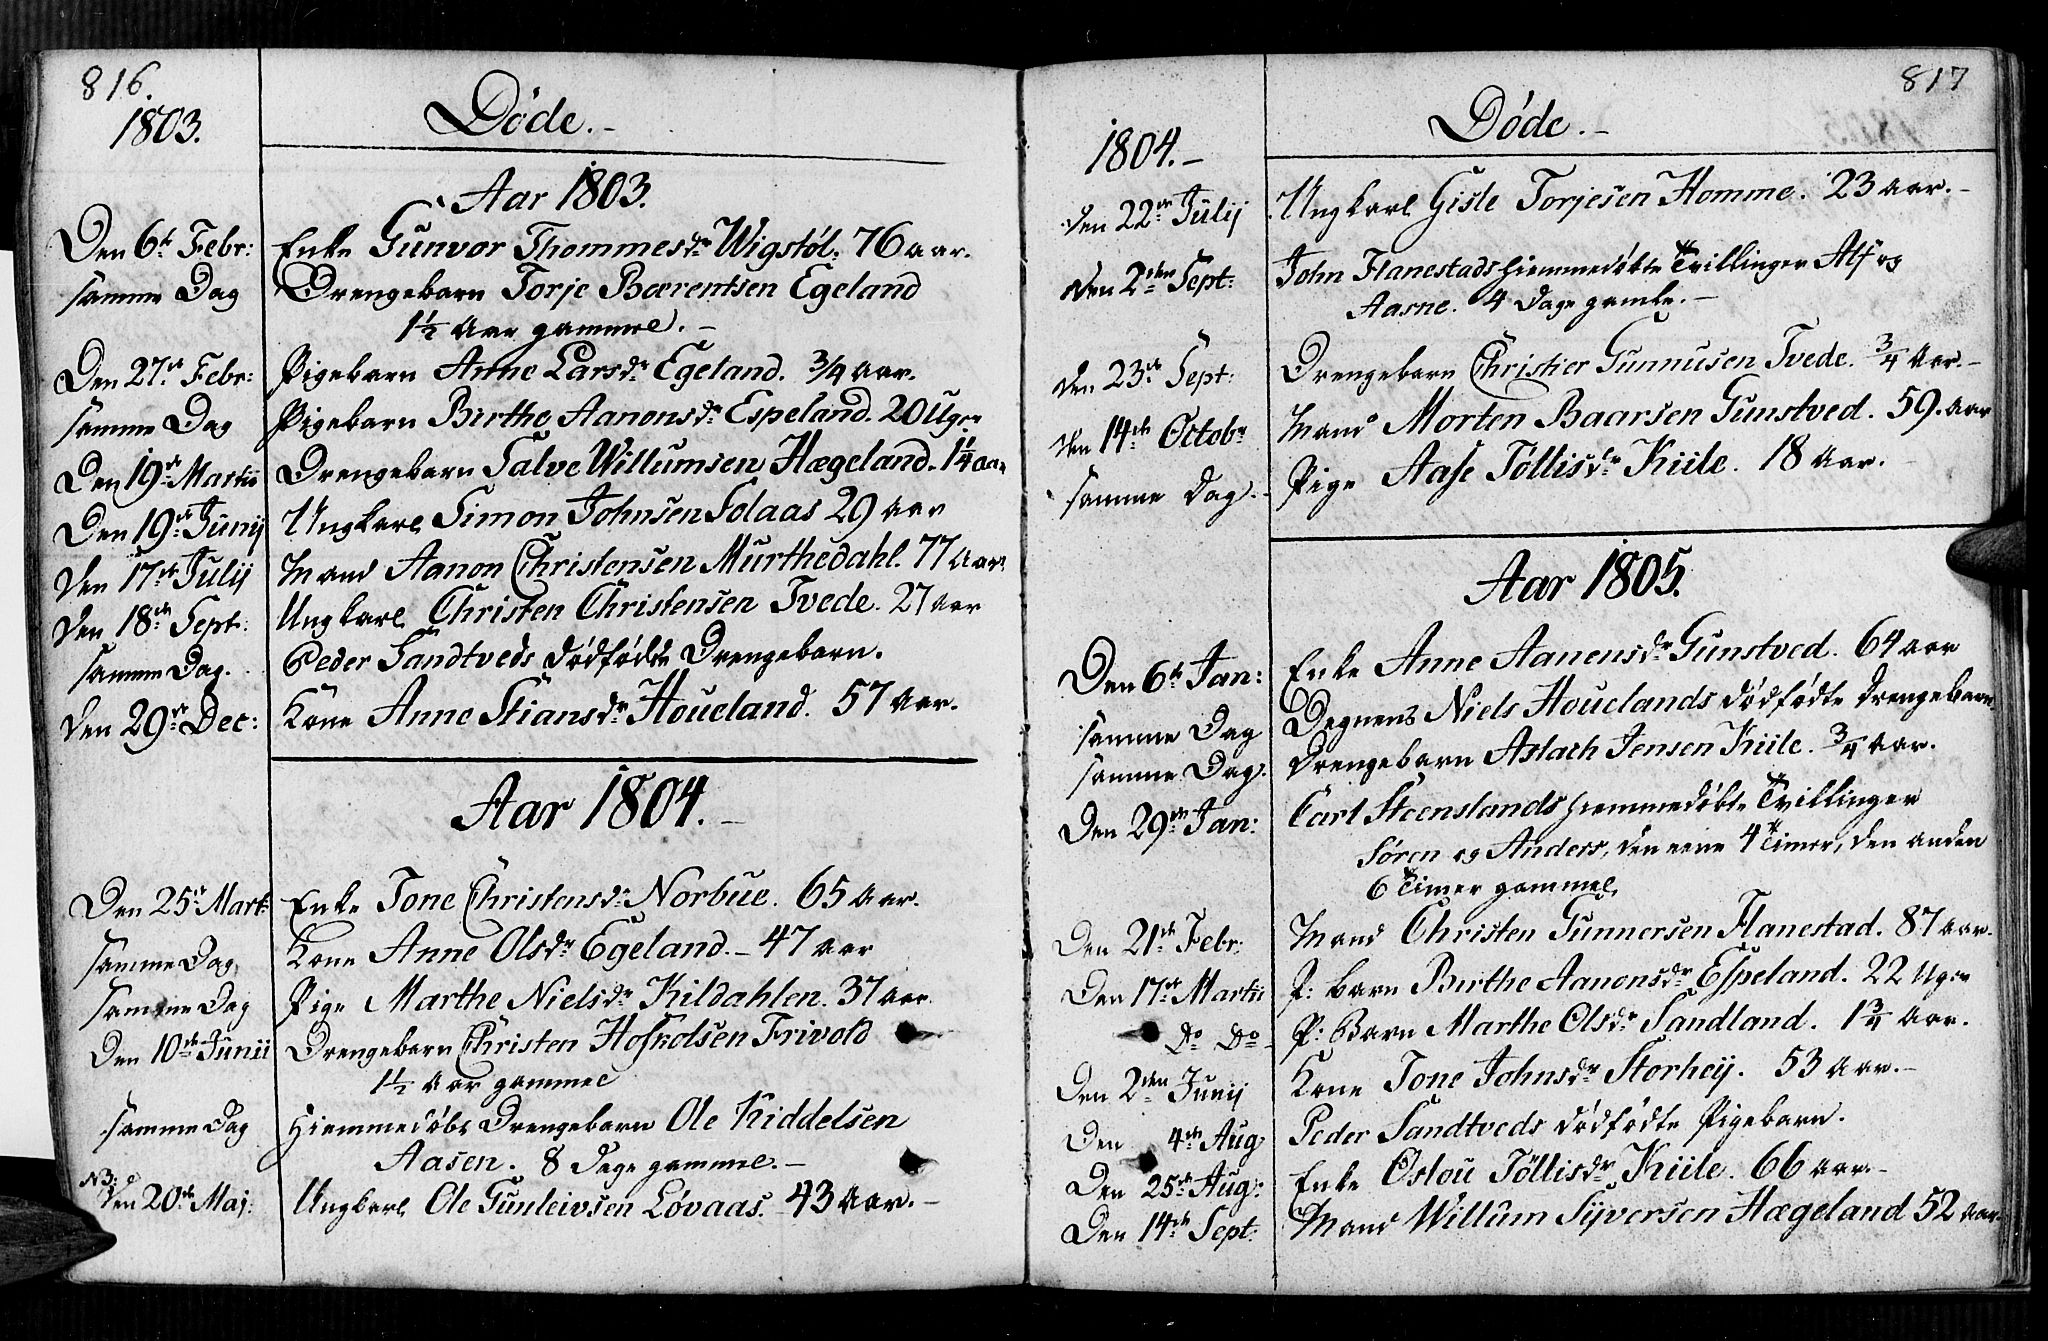 816.
1803.
Døde.-
Aar 1803.
Den 6te Febr: Enke Gunvor Thommesdr Wigstøl. 76 aar.
samme Dag Drengebarn Torje Bærentsen Egeland
1½ Aar gammel.-
Den 27de Febr: Pigebarn Anne Larsdr Egeland. ¾ aar.
samme Dag Pigebarn Birthe Aanonsdr Espeland. 20 Uger
Den 19de Martii Drengebarn Salve Willumsen Hægeland. 1¼ aar
Den 19de Junij Ungkarl Simon Johnsen Solaas 29 aar
Den 17de Julij Mand Aanon Christensen Murthedahl. 77 Aar
Den 18de Sept: Ungkarl Christen Christensen Tvede. 27 Aar
samme Dag. Peder Sandtveds dødfødte Drengebarn.
Den 29de Dec: Kone Anne Stiansdr Houeland. 57 Aar.
Aar 1804.-
Den 25de Mart: Enke Tone Christensdr Norbue. 65 Aar.
samme Dag Kone Anne Olsdr Egeland. - 47 aar
samme Dag Pige Marthe Nielsdr Kildahlen. 37 aar.
Den 10de Junii Drengebarn Christen Hofkolsen Trivold
1½ Aar gammel
samme Dag Hiemmedøbt Drengebarn Ole Kiddelsen
Aasen. 8 Dage gammel.-
NB:
Den 20de Maj: Ungkarl Ole Gunleivsen Løvaas. 43 Aar.-
817
1804.-
Døde.-
Den 22de Julij Ungkarl Gisle Torjesen Homme. 23 aar.-
Den 2den Sept: John Flanestads hiemmedøbte Tvillinger Alf og
Aasne. 4 Dage gamle.-
Den 23de Sept: Drengebarn Christier Gunnusen Tvede. ¾ Aar.-
Den 14de Octobr Mand Morten Baarsen Gunstved. 59. Aar
samme Dag.- Pige Aase Tøllisdr Kiile. 18 Aar.
Aar 1805.
Den 6te Jan: Enke Anne Aanensdr Gunstved. 64 aar
samme Dag Degnens Niels Houelands dødfødte Drengebarn.
samme Dag. Drengebarn Aslach Jensen Kiile. ¾ Aar.
Den 29de Jan: Carl Steenslands hiemmedøbte Tvillinger
Søren og Anders, den eene 4 Timer, den anden
6 Timer gammel,
Den 21de Febr: Mand Christen Gunnersen Flanestad. 87 aar.
Den 17de Martii P: barn Birthe Aanonsdr Espeland. 22 Uger
Do Do P: Barn Marthe Olsdr Sandland. 1¾ Aar.
Den 2den Junij Kone Tone Johnsdr Storheij. 53 Aar.-
Den 4de Aug Peder Sandtveds dødfødte Pigebarn.
Den 25de Aug: Enke Oslou Tøllisdr Kiile. 66 aar.-
Den 14de Sept: Mand Willum Syversen Hægeland 52 aar.